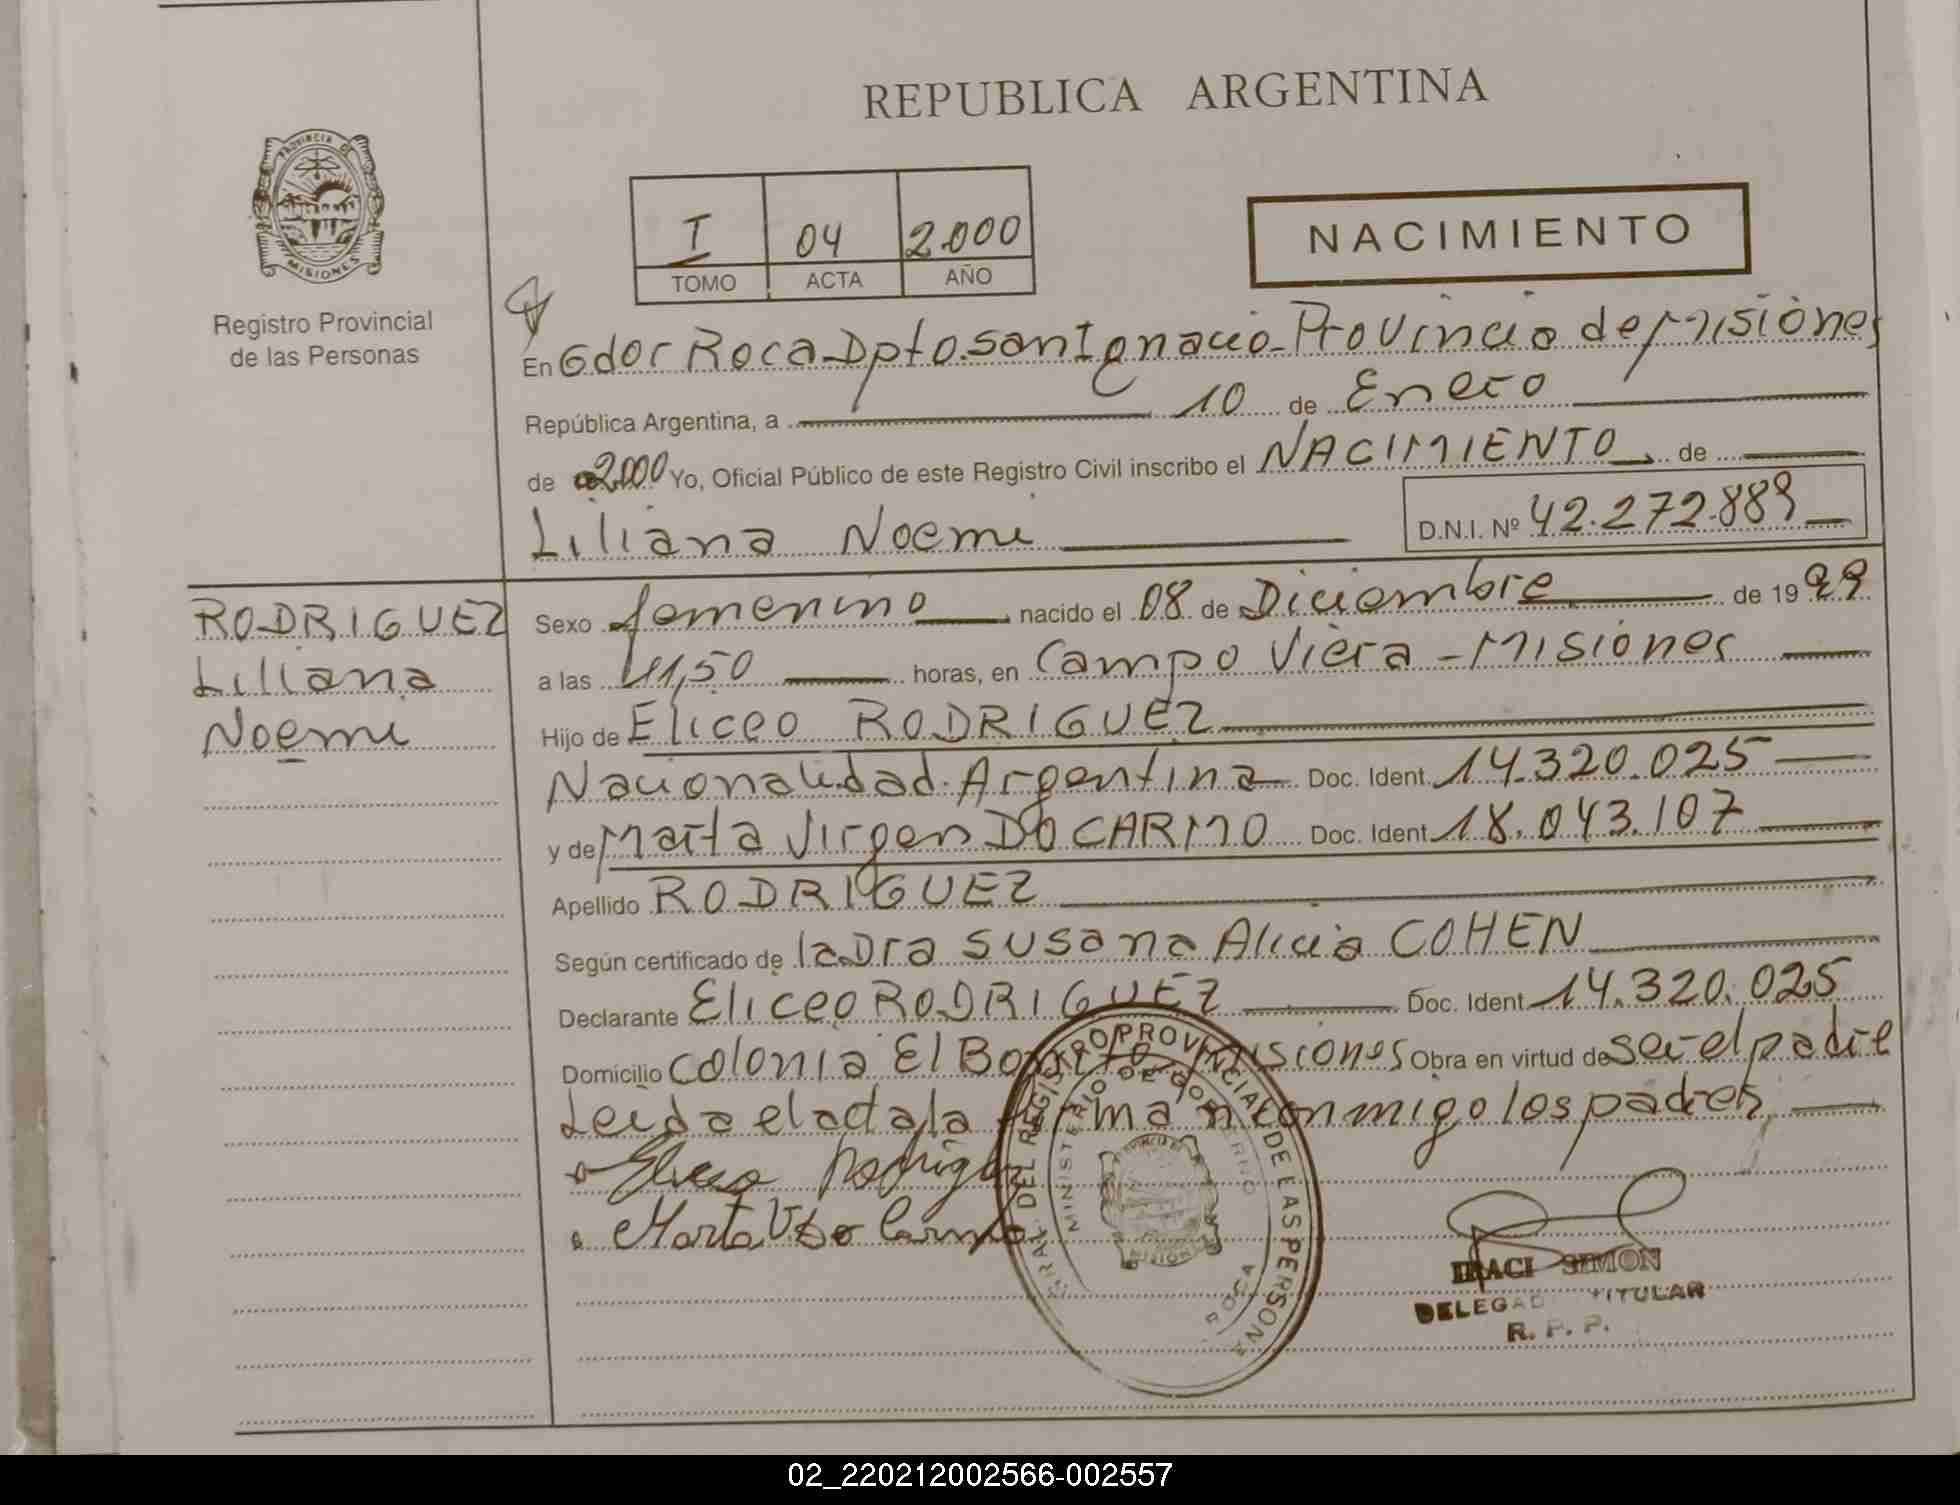 REPUBLICA ARGENTINA
PROVINCIA DE
MISIONES
Registro Provincial
de las Personas
I 04 2.000
TOMO ACTA AÑO
NACIMIENTO
En Gdor Roca Dpto. San Ignacio - Provincia de Misiones
República Argentina, a 10 de Enero
de 2.000 Yo, Oficial Público de este Registro Civil inscribo el NACIMIENTO de
Liliana Noemi D.N.I. Nº 42.272.889
RODRIGUEZ
Liliana
Noemi
Sexo femenino nacido el 08 de Diciembre de 1999
a las 11,50 horas, en Campo Viera - Misiones
Hijo de Eliceo RODRIGUEZ
Nacionalidad Argentina Doc. Ident. 14.320.025
y de Marta Virgen DO CARMO Doc. Ident. 18.043.107
Apellido RODRIGUEZ
Según certificado de la Dra Susana Alicia COHEN
Declarante Eliceo RODRIGUEZ Doc. Ident. 14.320.025
Domicilio Colonia El Misiones Obra en virtud de ser el padre
Leida el acta la firman conmigo los padres
Eliceo Rodriguez
Marta V Do Carmo
GRAL. DEL REGISTRO PROVINCIAL DE LAS PERSONAS
MINISTERIO DE GOBIERNO
ROCA
IRACI SIMON
DELEGAD TITULAR
R. P. P.
02_220212002566-002557